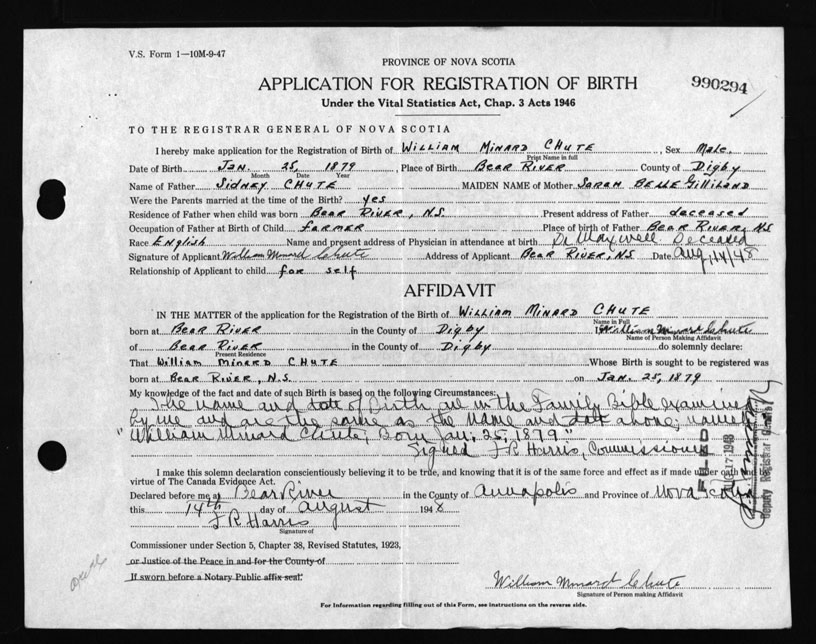 V.S. Form 1—10M-9-47
PROVINCE OF NOVA SCOTIA
APPLICATION FOR REGISTRATION OF BIRTH
990294
Under the Vital Statistics Act, Chap. 3 Acts 1946
TO THE REGISTRAR GENERAL OF NOVA SCOTIA
I hereby make application for the Registration of Birth of William Minard Chute, Sex Male.
Print Name in full
Date of Birth Jan. 25, 1879 Place of Birth Bear River County of Digby
Month Date Year
Name of Father Sidney Chute MAIDEN NAME of Mother Sarah Belle Gilliland
Were the Parents married at the time of Birth? yes
Residence of Father when child was born Bear River, N.S. Present address of Father deceased
Occupation of Father at Birth of Child farmer Place of birth of Father Bear River, N.S
Race English Name and present address of Physician in attendance at birth Dr Maxwell Deceased
Signature of Applicant William Minard Chute Address of Applicant Bear River, N.S Date Aug, 14/48
Relationship of Applicant to child for self
AFFIDAVIT
IN THE MATTER of the application for the Registration of the Birth of William Minard Chute
Name in Full
born at Bear River in the County of Digby I, William Minard Chute
Name of Person Making Affidavit
of Bear River in the County of Digby do solemnly declare:
Present Residence
That William Minard Chute Whose Birth is sought to be registered was
born at Bear River, N.S. on Jan. 25, 1879
My knowledge of the fact and date of such Birth is based on the following Circumstances:
The name and date of Birth are in the Family Bible examined
by me and are the same as the name and date above; namely
"William Minard Chute, Born Jan, 25, 1879"
Signed F R Harris, Commissioner
FILED
AUG 17 1948
Deputy Registrar General
I make this solemn declaration conscientiously believing it to be true, and knowing that it is of the same force and effect as if made under oath and by
virtue of The Canada Evidence Act.
Declared before me at Bear River in the County of Annapolis and Province of Nova Scotia
this 14th day of August 1948
F R Harris
Signature of
Commissioner under Section 5, Chapter 38, Revised Statutes, 1923,
or Justice of the Peace in and for the County of
If sworn before a Notary Public affix seal.
William Minard Chute
Signature of Person making Affidavit
For Information regarding filling out of this Form, see instructions on the reverse side.